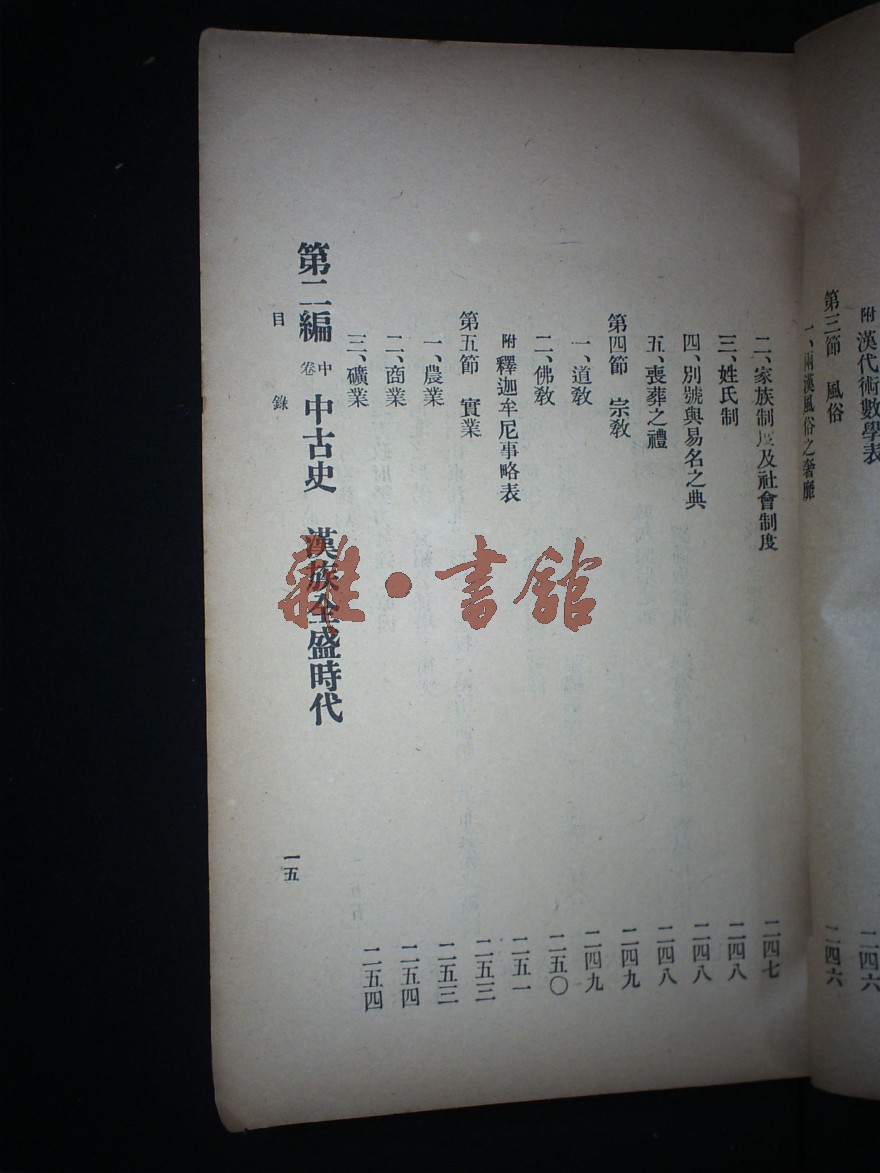 附 漢代術數學表 二四六
第三節 風俗 二四六
一、兩漢風俗之奢靡
二、家族制度及社會制度 二四七
三、姓氏制 二四八
四、別號與易名之典 二四八
五、喪葬之禮 二四八
第四節 宗教 二四九
一、道教 二四九
二、佛教 二五〇
附 釋迦牟尼事略表 二五一
第五節 實業 二五三
一、農業 二五三
二、商業 二五四
三、礦業 二五四
第二編 中卷 中古史 漢族全盛時代
目錄 一五
雜·書館